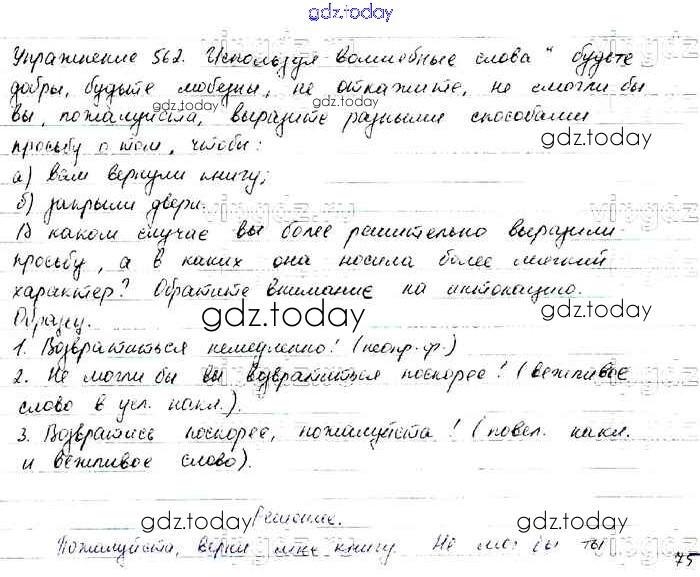 gdz.today
Упражнение 562. Используя волшебные слова "будьте
добры, будьте любезны, не откажите, не смогли бы
gdz.today gdz.today
вы, пожалуйста, выразите разными способами
gdz.today
просьбу о том, чтобы:
а) вам вернули книгу;
б) закрыли двери.
virgdz.ru virgdz
В каком случае вы более решительно выразили
просьбу, а в каких она носила более мягкий
характер? Обратите внимание на интонацию.
gdz.today gdz.today
Образец.
1. Возвратиться немедленно! (неопр. ф.)
2. Не могли бы вы возвратиться поскорее! (вежливое
слово в усл. накл.).
3. Возвратись поскорее, пожалуйста! (повел. накл.
и вежливое слово).
gdz.today Решение. gdz.today
Пожалуйста, верни мне книгу. Не мог бы ты
75